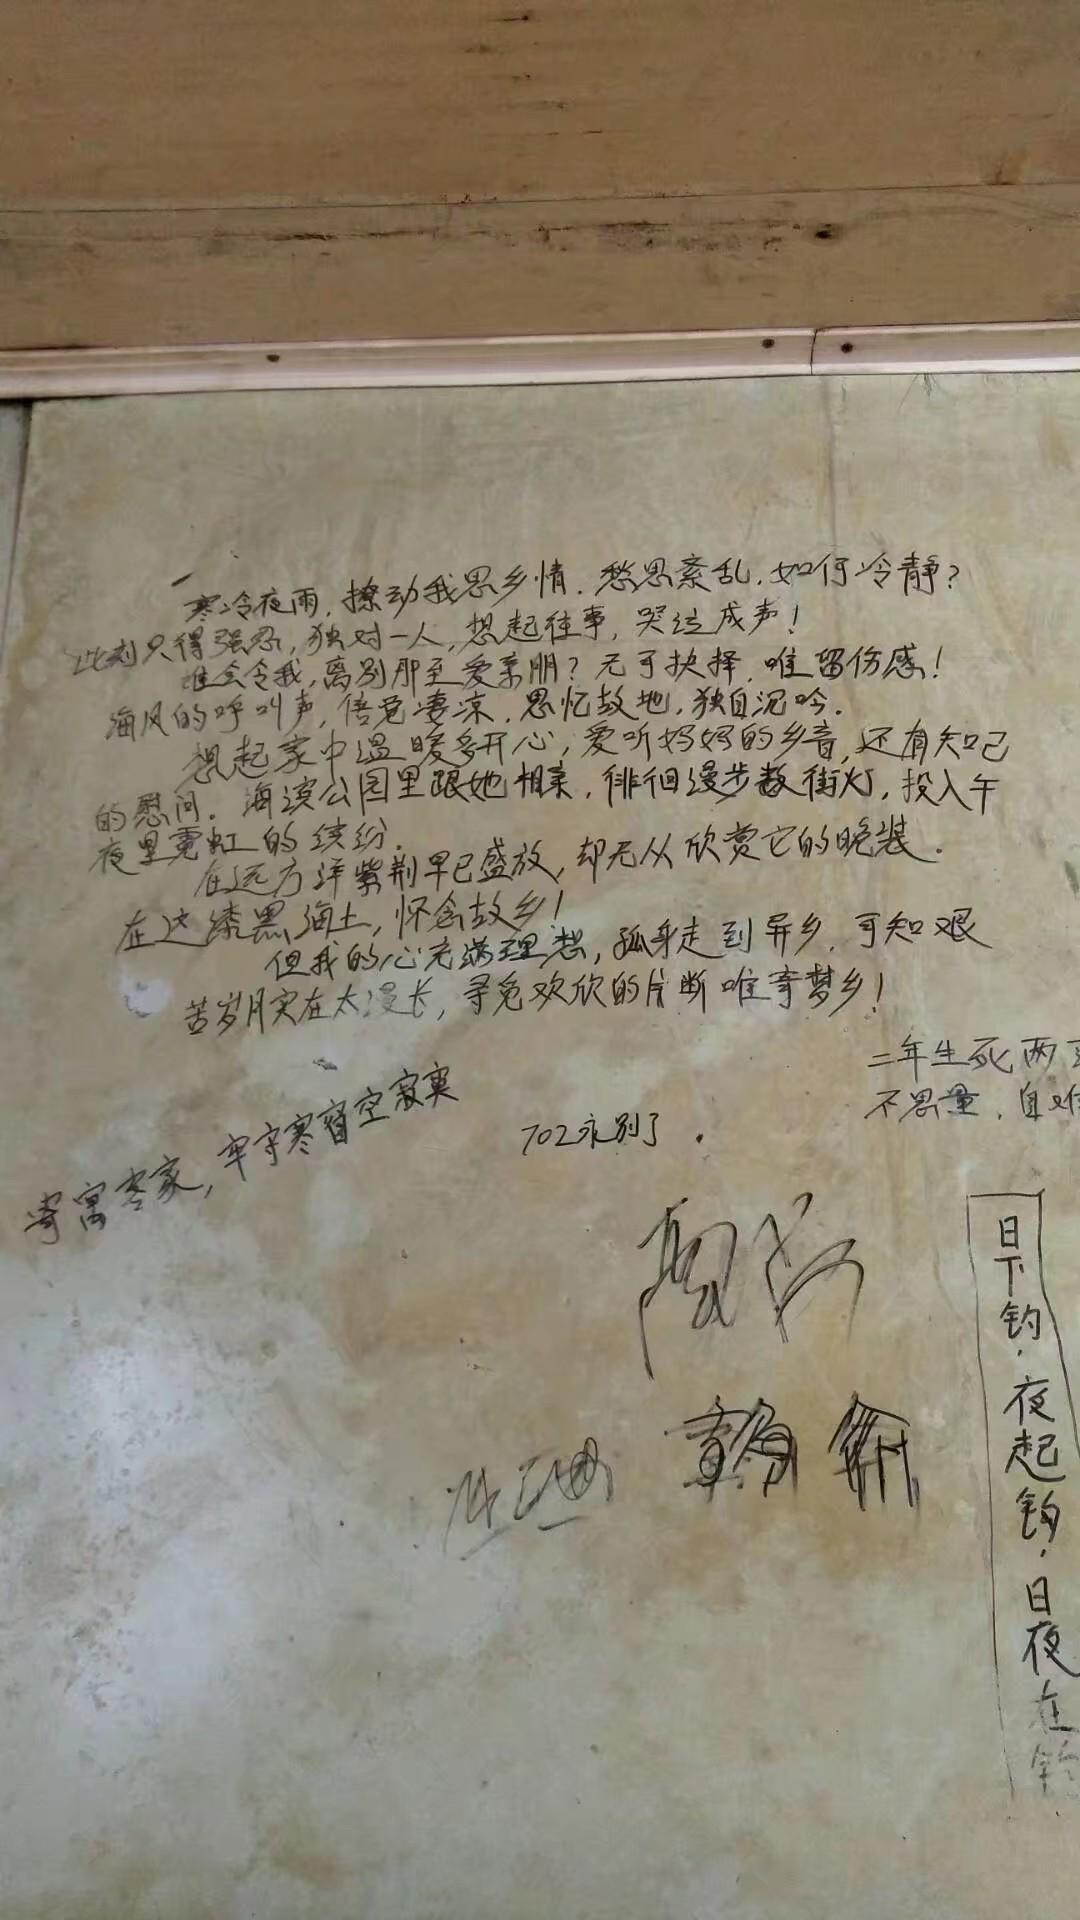 寒冷夜雨，撩动我思乡情．愁思紊乱．如何冷静？
此刻只得强忍，独对一人，想起往事，哭泣成声！
谁会令我，离别那至爱亲朋？无可抉择，唯留伤感！
海风的呼叫声，倍觉凄凉．思忆故地，独自沉吟．
想起家中温暖多开心，爱听妈妈的乡音，还有知己
的慰问．海滨公园里跟她相亲，徘徊漫步数街灯，投入午
夜里霓虹的缤纷．
在远方洋紫荆早已盛放，却无从欣赏它的晚装．
在这漆黑海上，怀念故乡！
但我的心充满理想，孤身走到异乡，可知艰
苦岁月实在太漫长，寻觅欢欣的片断唯寄梦乡！
二年生死两
不思量，自难
寄寓客家，牢守寒窗空寂寞
702永别了．
日下钓．夜起钓．日夜在钓